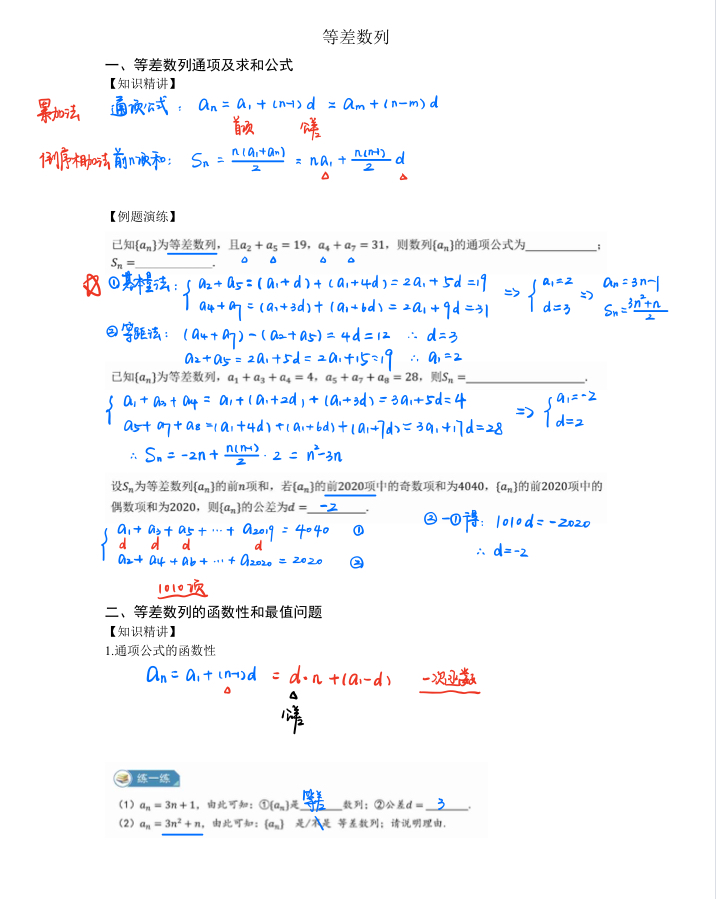 等差数列
一、等差数列通项及求和公式
【知识精讲】
累加法 通项公式: aₙ = a₁ + (n-1)d = aₘ + (n-m)d
首项 公差
倒序相加法 前n项和: Sₙ = n(a₁+aₙ)/2 = na₁ + n(n-1)/2 d
【例题演练】
已知{aₙ}为等差数列，且a₂ + a₅ = 19，a₄ + a₇ = 31，则数列{aₙ}的通项公式为____________；
Sₙ =____________.
①基本量法: { a₂+a₅=(a₁+d)+(a₁+4d)=2a₁+5d=19 => { a₁=2 => aₙ=3n-1
a₄+a₇=(a₁+3d)+(a₁+6d)=2a₁+9d=31 d=3 Sₙ=3n²+n/2
②等距法: (a₄+a₇)-(a₂+a₅)=4d=12 ∴ d=3
a₂+a₅=2a₁+5d=2a₁+15=19 ∴ a₁=2
已知{aₙ}为等差数列，a₁ + a₃ + a₄ = 4，a₅ + a₇ + a₈ = 28，则Sₙ =____________.
{ a₁+a₃+a₄ = a₁+(a₁+2d)+(a₁+3d)=3a₁+5d=4 => { a₁=-2
a₅+a₇+a₈=(a₁+4d)+(a₁+6d)+(a₁+7d)=3a₁+17d=28 d=2
∴ Sₙ = -2n + n(n-1)/2 · 2 = n²-3n
设Sₙ为等差数列{aₙ}的前n项和，若{aₙ}的前2020项中的奇数项和为4040，{aₙ}的前2020项中的
偶数项和为2020，则{aₙ}的公差为d = -2 .
{ a₁+a₃+a₅+⋯+a₂₀₁₉ = 4040 ① ②-①得: 1010d=-2020
d d d d
a₂+a₄+a₆+⋯+a₂₀₂₀ = 2020 ② ∴ d=-2
1010项
二、等差数列的函数性和最值问题
【知识精讲】
1.通项公式的函数性
aₙ = a₁+(n-1)d = d·n+(a₁-d) 一次函数
公差
练一练
（1）aₙ = 3n + 1，由此可知：①{aₙ}是 等差 数列；②公差d = 3 .
（2）aₙ = 3n² + n，由此可知：{aₙ} 是/不是 等差数列；请说明理由.